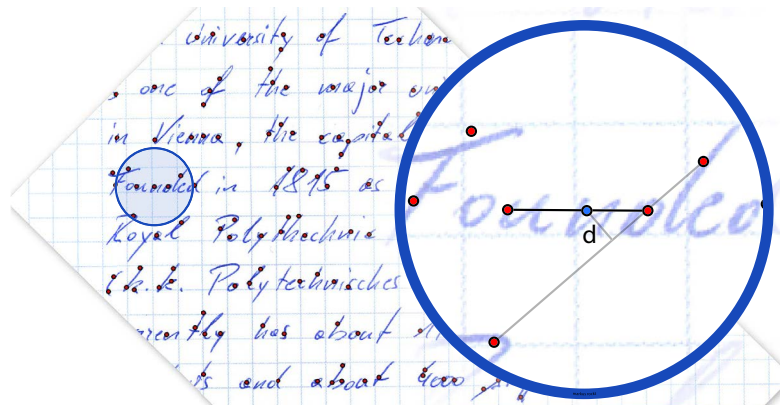 University of Techn
is one of the major uni
in Vienna, the capital
Founded in 1815 as
Royal Polythechnic
(k.k. Polytechnisches
has about
and about 4000
Founded
d